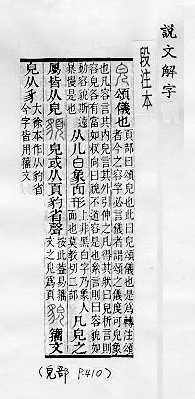 說文解字
段注本
皃 頌儀也 頁部曰頌皃也此曰皃頌儀也是為轉注頌
者今之容字必言儀者謂頌之儀度可皃象
也凡容言其內皃言其外引伸之凡得其狀曰皃析言則
容皃各有當如叔向曰貌不道容是也絫言則曰容貌如
動容貌斯遠
暴慢是也 从儿白象面形 上非黑白字乃象人
面也莫教切二部 凡皃之
屬皆从皃 䫉 皃或从頁豹省聲 按此蓋易籀
文之皃為頁 貌 籀文
皃从豸 大徐本作从豹省
今字皆用籀文
(皃部 P410)